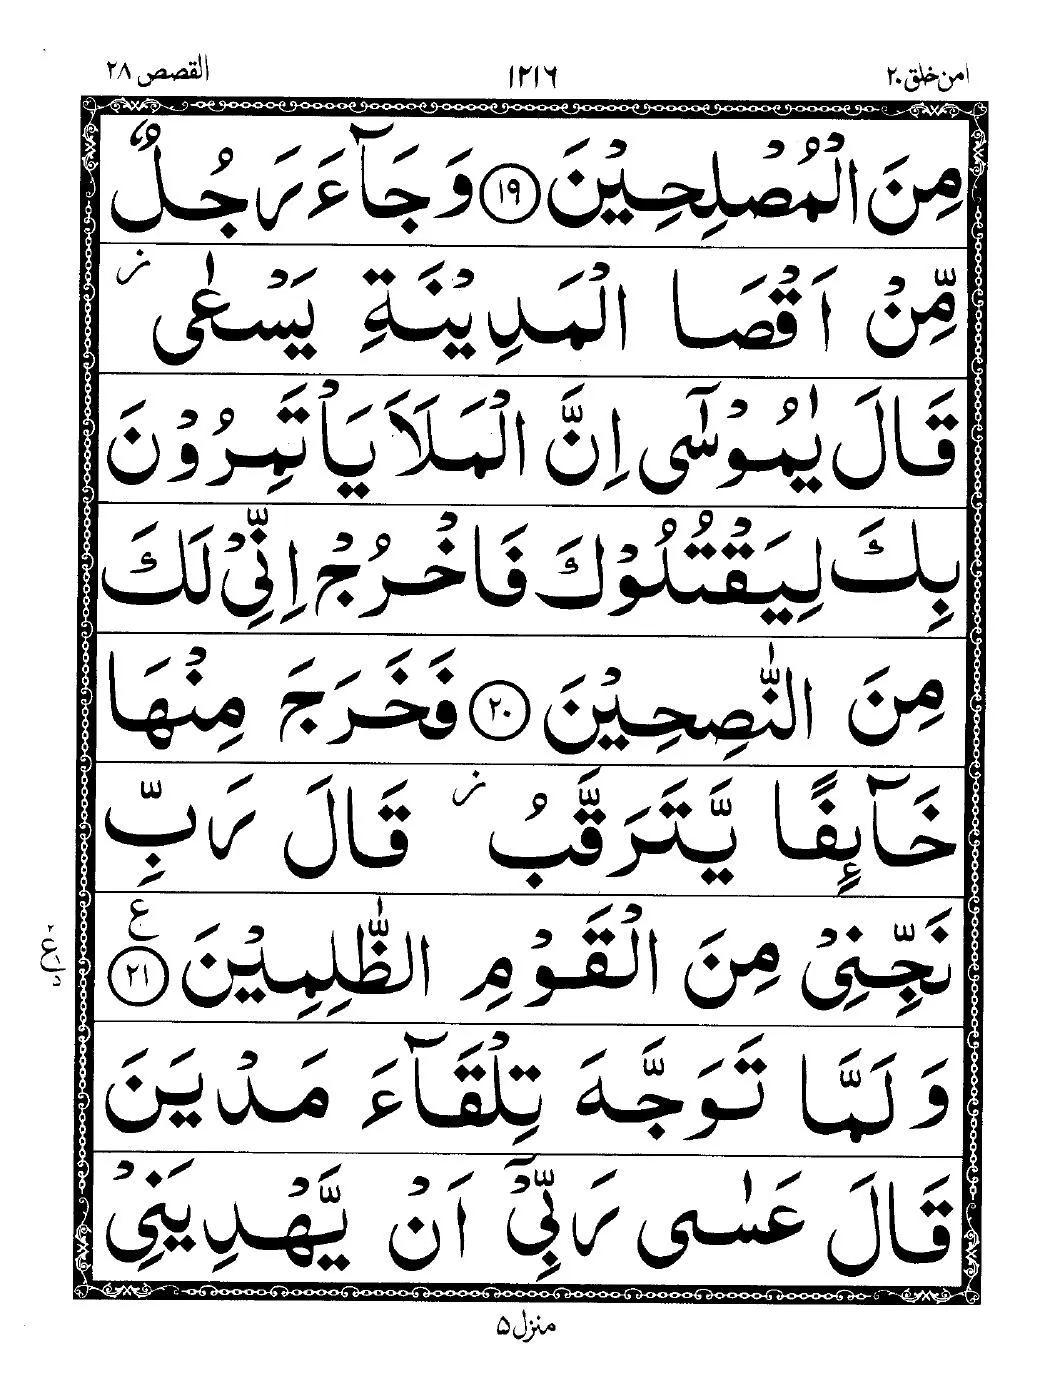 امن خلق ۲۰ ۱۲۱۶ القصص ۲۸
مِنَ الْمُصْلِحِيْنَ ۱۹ وَجَآءَ رَجُلٌ
مِّنْ اَقْصَا الْمَدِيْنَةِ يَسْعٰى ز
قَالَ يٰمُوْسٰٓى اِنَّ الْمَلَاَ يَاْتَمِرُوْنَ
بِكَ لِيَقْتُلُوْكَ فَاخْرُجْ اِنِّىْ لَكَ
مِنَ النّٰصِحِيْنَ ۲۰ فَخَرَجَ مِنْهَا
خَآىِٕفًا يَّتَرَقَّبُ ز قَالَ رَبِّ
نَجِّنِىْ مِنَ الْقَوْمِ الظّٰلِمِيْنَ ۲۱ ع
وَلَمَّا تَوَجَّهَ تِلْقَآءَ مَدْيَنَ
قَالَ عَسٰى رَبِّىْٓ اَنْ يَّهْدِيَنِىْ
منزل ۵